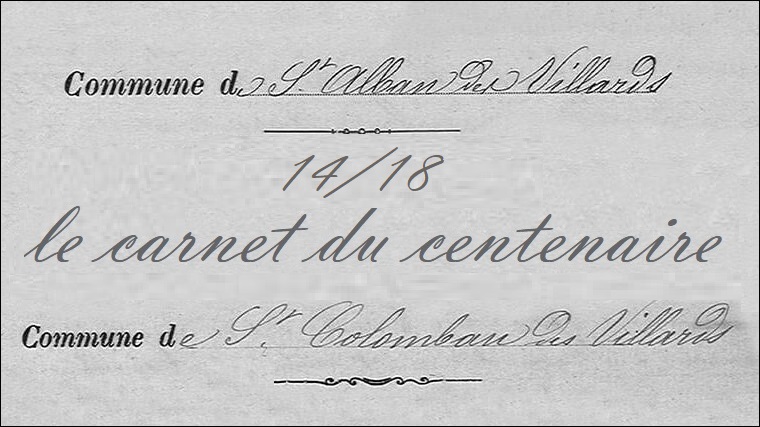 Commune de St Alban des Villards
14/18
le carnet du centenaire
Commune de St Colomban des Villards